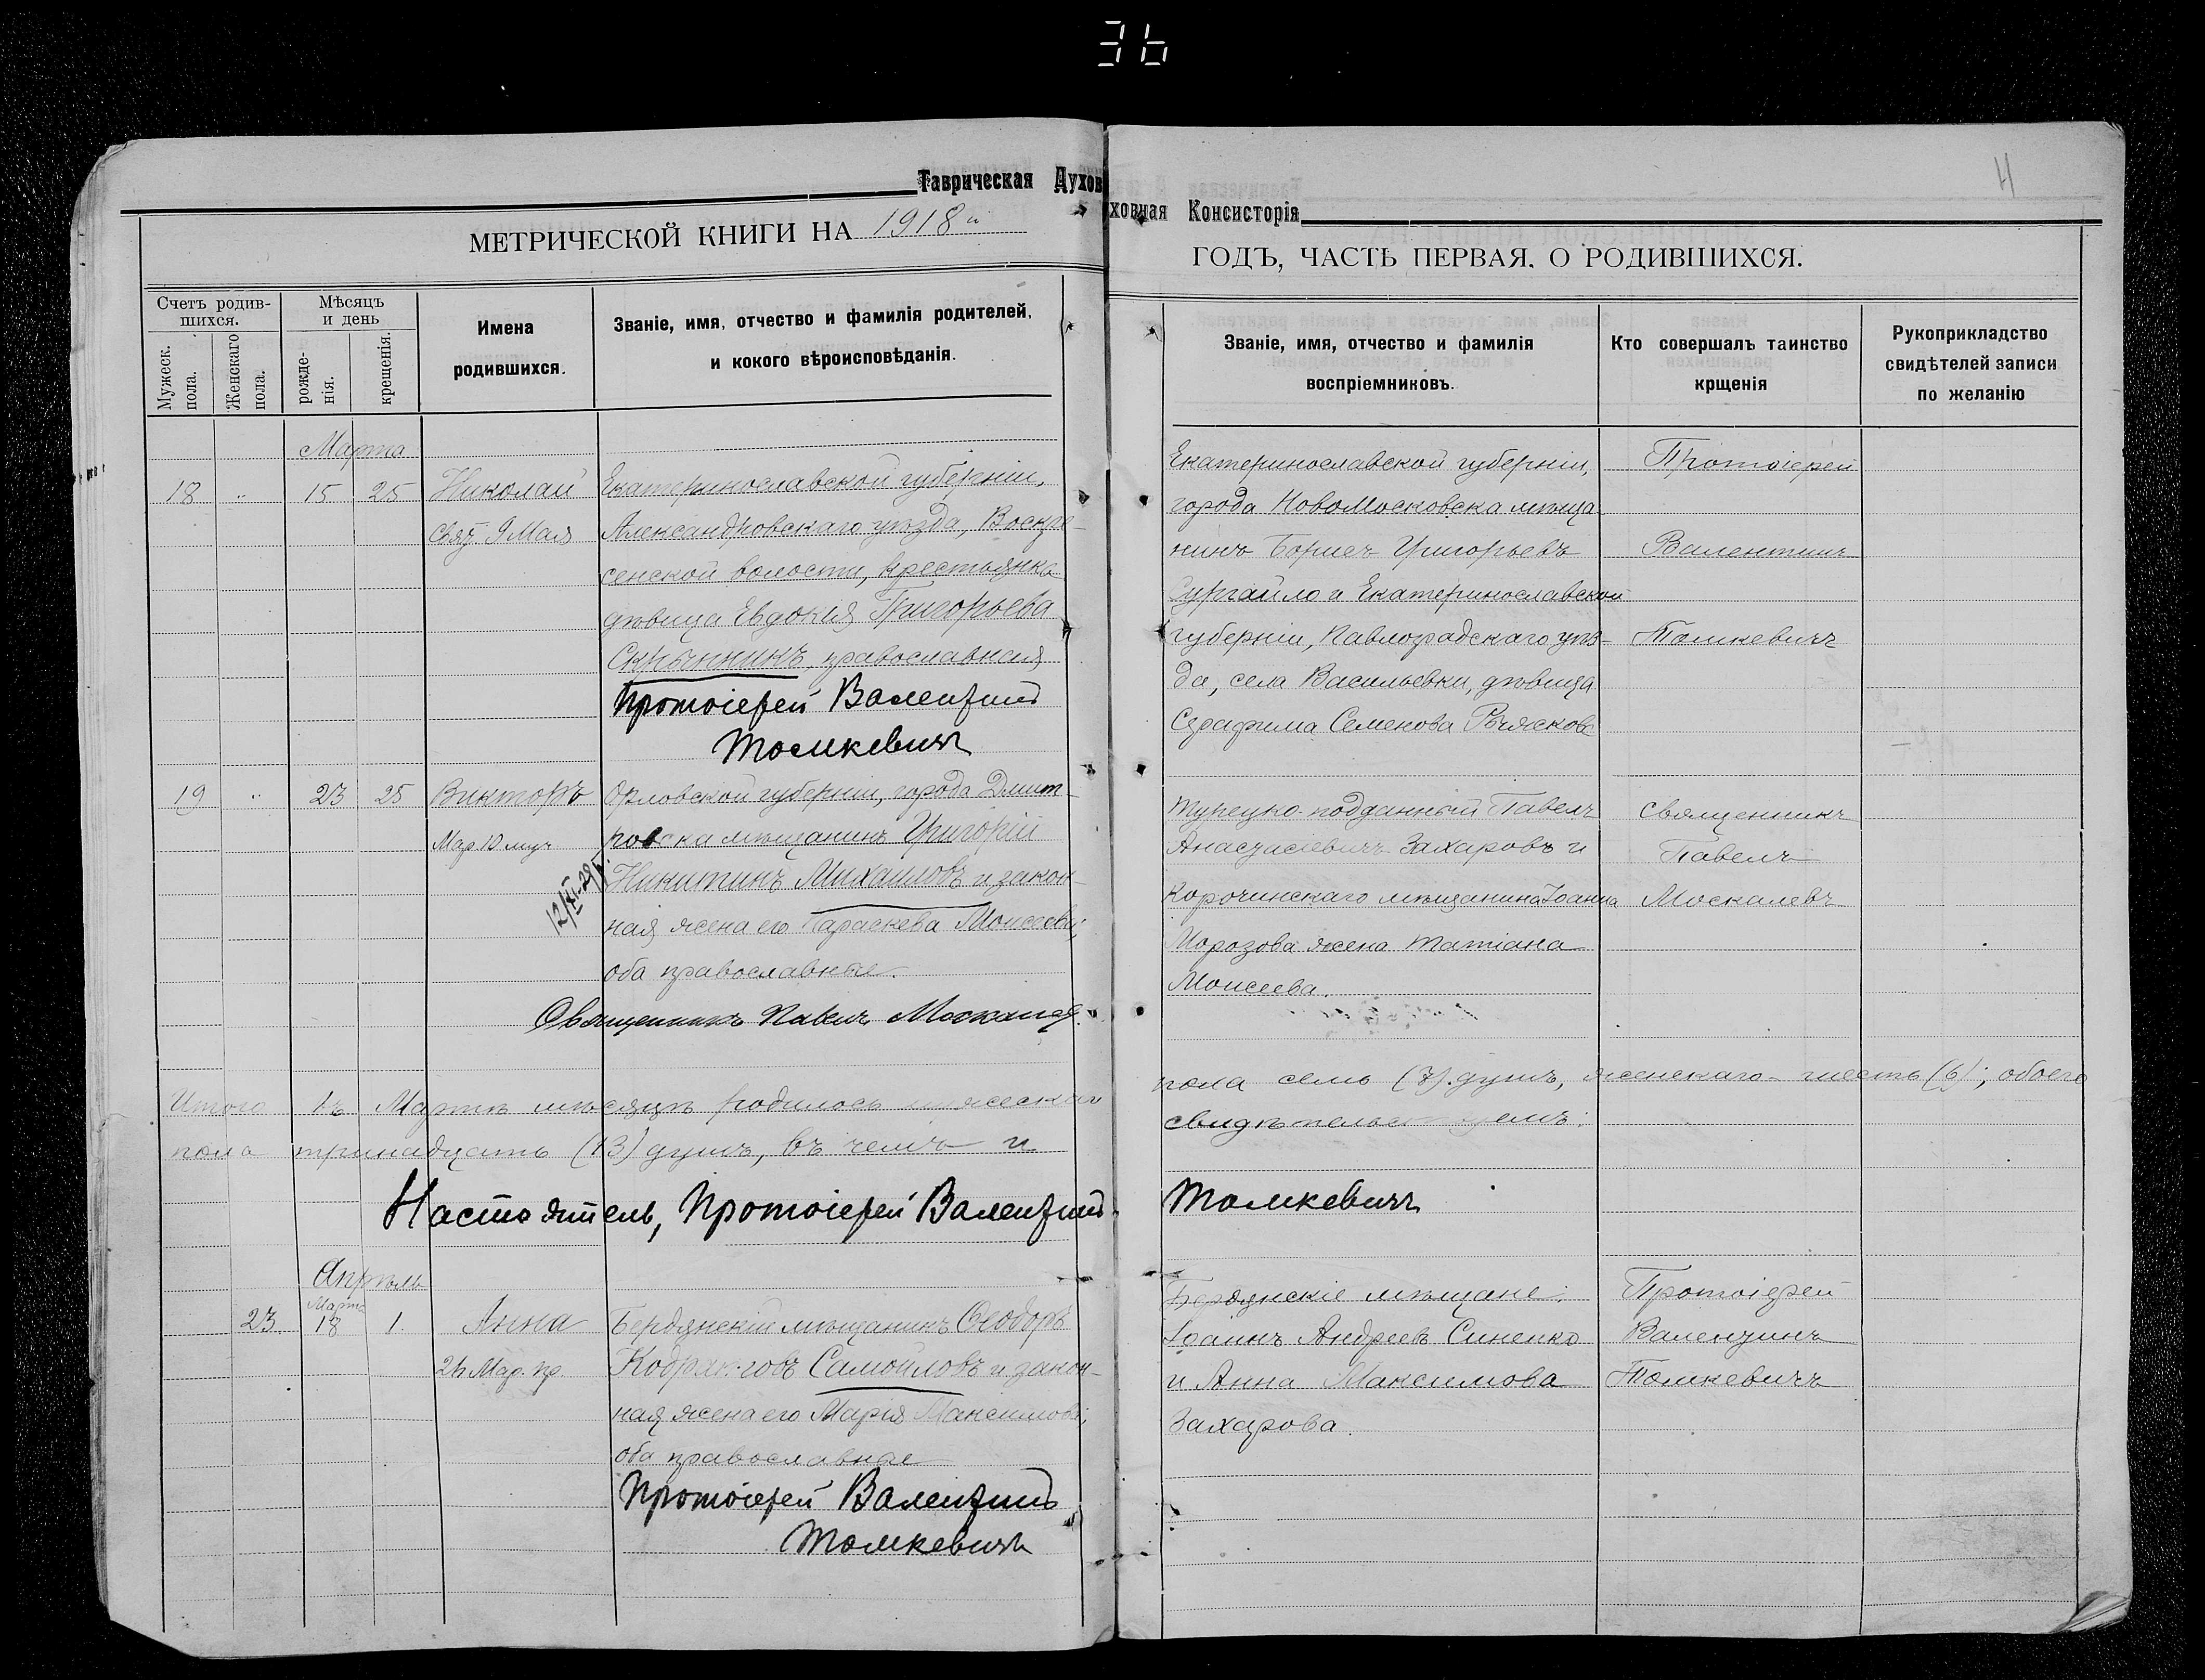 36
4
Таврическая Духов
ховная Консисторія
МЕТРИЧЕСКОЙ КНИГИ НА 1918 й
ГОДЪ, ЧАСТЬ ПЕРВАЯ. О РОДИВШИХСЯ.
Счетъ родив-
шихся.
Мужеск. пола.
Женскаго пола.
Мѣсяцъ
и день
рожде-
нія.
крещенія.
Имена
родившихся.
Званіе, имя, отчество и фамилія родителей,
и кокого вѣроисповѣданія.
Званіе, имя, отчество и фамилія
воспріемниковъ.
Кто совершалъ таинство
крщенія
Рукоприкладство
свидѣтелей записи
по желанію
Марта
18 " 15 25 Николай
Свят. 9 Мая
Екатеринославской губерніи,
Александровскаго уѣзда, Воскре-
сенской волости, крестьянка
дѣвица Евдокія Григорьева
Скрынникъ, православная
Протоіерей Валентинъ
Томкевичъ
Екатеринославской губерніи,
города Новомосковска мѣща
нинъ Борисъ Григорьевъ
Сургайло и Екатеринославской
губерніи, Павлоградскаго уѣз-
да, села Васильевки, дѣвица
Серафима Семенова
Протоіерей
Валентинъ
Томкевичъ
19 " 23 25 Викторъ
Мар. 10 муч
Орловской губерніи, города Дмит-
ровска мѣщанинъ Григорій
Никитинъ Михаиловъ и закон-
ная жена его Параскева Моисеева,
оба православные.
Священникъ Павелъ Москалев.
Турецко-подданный Павелъ
Анастасіевичъ Захаровъ и
Корочинскаго мѣщанина Іоанна
Морозова жена Татіана
Моисеева.
Священникъ
Павелъ
Москалевъ
Итого въ Мартѣ мѣсяцѣ родилось мужескаго
пола семь (7) душъ, женскаго - шесть (6); обоего
пола тринадцать (13) душъ, въ чемъ и
свидѣтельствуемъ:
Настоятель, Протоіерей Валентинъ
Томкевичъ
Апрѣль
Марта
23 18 1. Анна
26 Мар. пр.
Бердянскій мѣщанинъ Ѳеодоръ
Самойловъ и закон-
ная жена его Марія Максимова,
оба православные
Протоіерей Валентинъ
Томкевичъ
Бердянскіе мѣщане:
Іоаннъ Андреевъ Синенко
и Анна Максимова
Захарова.
Протоіерей
Валентинъ
Томкевичъ